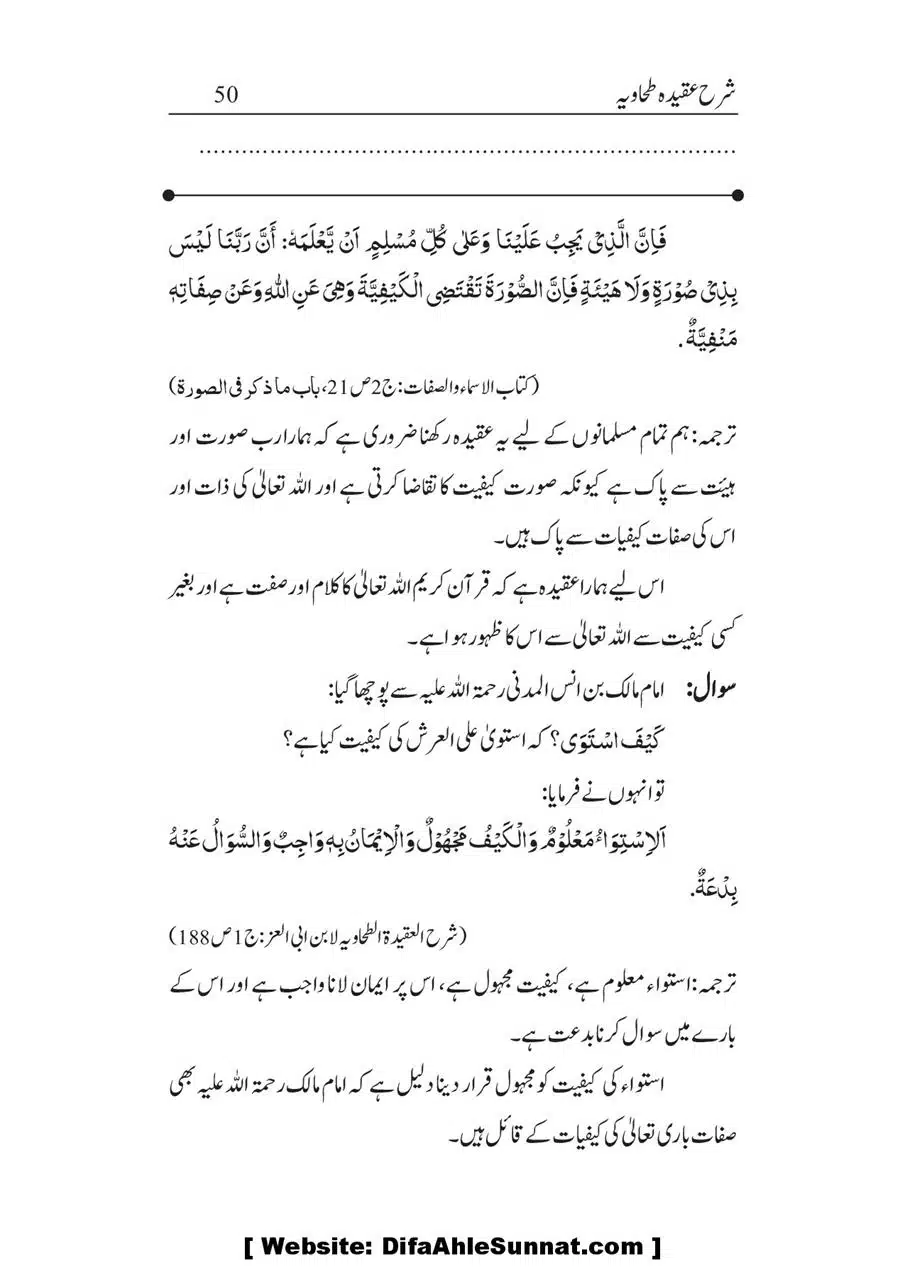 شرح عقیدہ طحاویہ 50
......................................................................
فَاِنَّ الَّذِیْ یَجِبُ عَلَیْنَا وَعَلٰی کُلِّ مُسْلِمٍ اَنْ یَّعْلَمَہٗ: أَنَّ رَبَّنَا لَیْسَ
بِذِیْ صُوْرَۃٍ وَلَا ھَیْئَۃٍ فَاِنَّ الصُّوْرَۃَ تَقْتَضِی الْکَیْفِیَّۃَ وَھِیَ عَنِ اللّٰہِ وَعَنْ صِفَاتِہٖ
مَنْفِیَّۃٌ.
(کتاب الاسماء والصفات: ج2 ص21، باب ما ذکر فی الصورۃ)
ترجمہ: ہم تمام مسلمانوں کے لیے یہ عقیدہ رکھنا ضروری ہے کہ ہمارا رب صورت اور
ہیئت سے پاک ہے کیونکہ صورت کیفیت کا تقاضا کرتی ہے اور اللہ تعالیٰ کی ذات اور
اس کی صفات کیفیات سے پاک ہیں۔
اس لیے ہمارا عقیدہ ہے کہ قرآن کریم اللہ تعالیٰ کا کلام اور صفت ہے اور بغیر
کسی کیفیت سے اللہ تعالیٰ سے اس کا ظہور ہوا ہے۔
سوال: امام مالک بن انس المدنی رحمۃ اللہ علیہ سے پوچھا گیا:
کَیْفَ اسْتَوَی؟ کہ استویٰ علی العرش کی کیفیت کیا ہے؟
تو انہوں نے فرمایا:
اَلْاِسْتِوَاءُ مَعْلُوْمٌ وَالْکَیْفُ مَجْھُوْلٌ وَالْاِیْمَانُ بِہٖ وَاجِبٌ وَالسُّوَالُ عَنْہُ
بِدْعَۃٌ.
(شرح العقیدۃ الطحاویہ لابن ابی العز: ج1 ص188)
ترجمہ: استواء معلوم ہے، کیفیت مجہول ہے، اس پر ایمان لانا واجب ہے اور اس کے
بارے میں سوال کرنا بدعت ہے۔
استواء کی کیفیت کو مجہول قرار دینا دلیل ہے کہ امام مالک رحمۃ اللہ علیہ بھی
صفات باری تعالیٰ کی کیفیات کے قائل ہیں۔
[ Website: DifaAhleSunnat.com ]